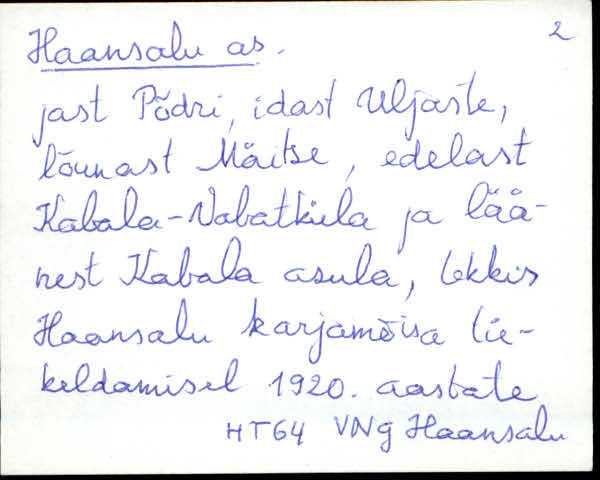 Haansalu as. 2
jast Põdri, idast Uljaste,
lõunast Mäitse, edelast
Kabala-Vabatküla ja lää-
nest Kabala asula, tekkis
Haansalu karjamõisa tü-
keldamisel 1920. aastate
HT64 VNg Haansalu